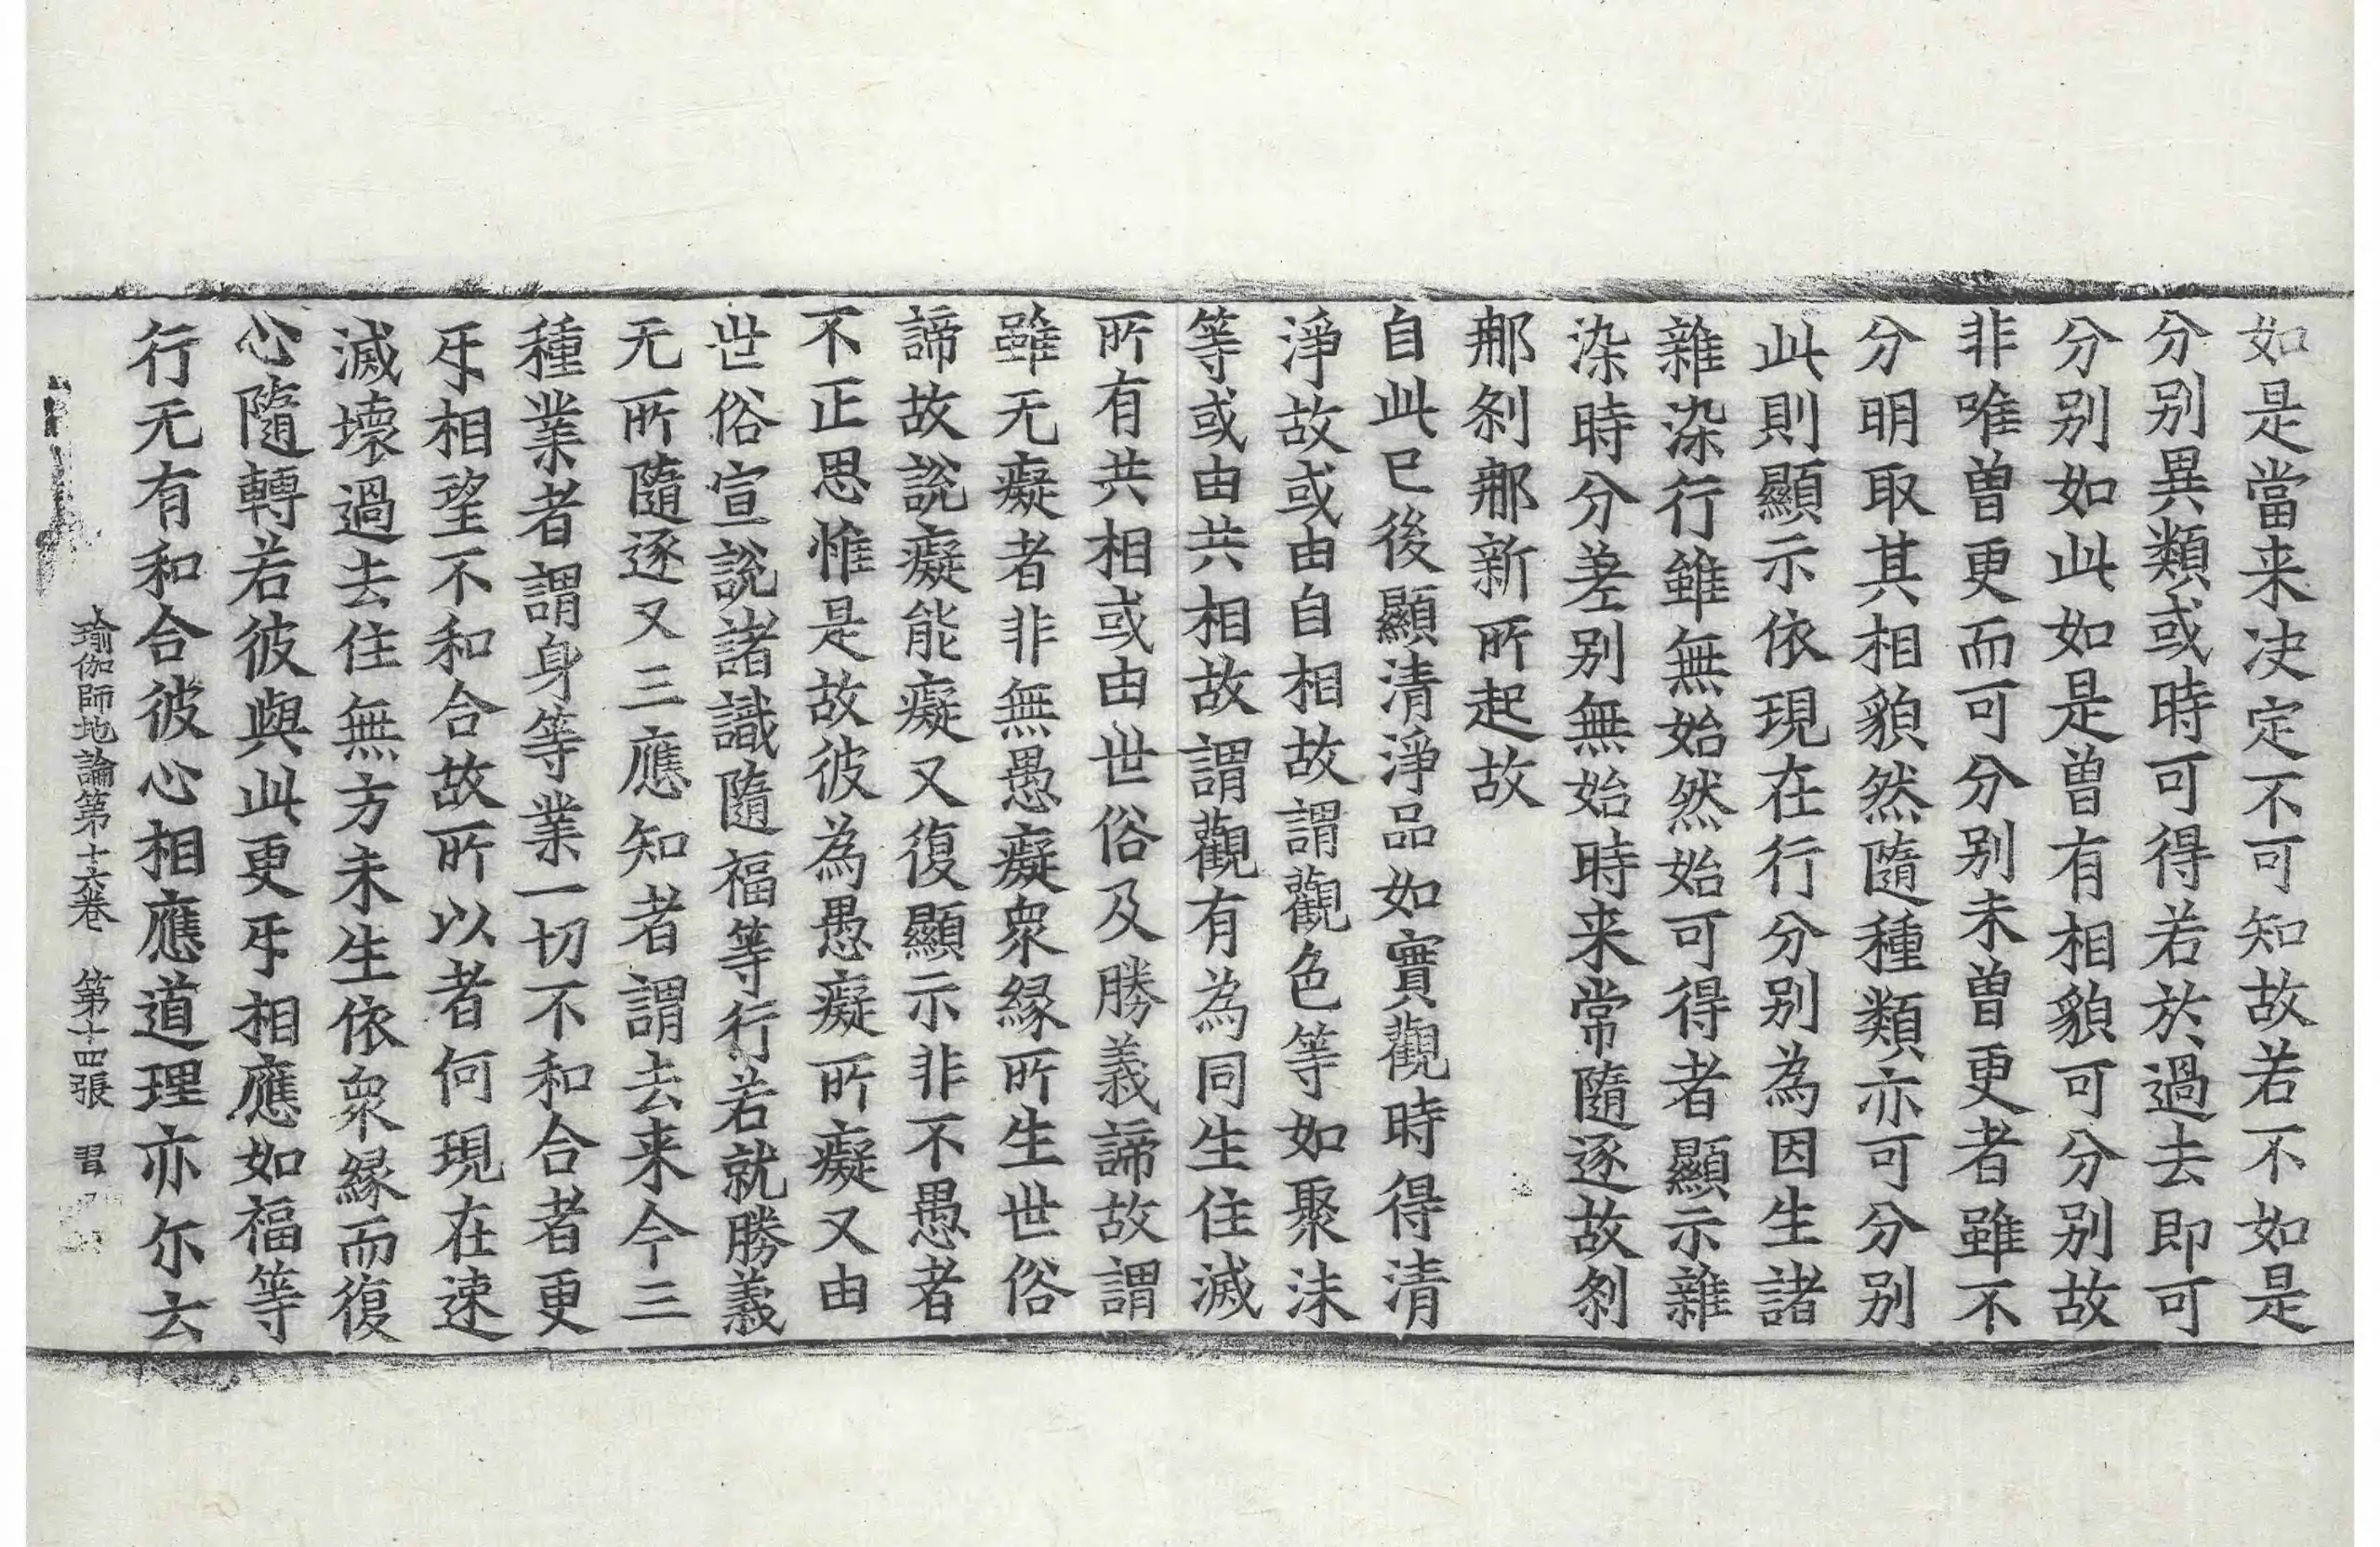 如是當来决定不可知故若不如是
分别異類或時可得若於過去即可
分别如此如是曽有相貌可分别故
非唯曽更而可分别未曽更者雖不
分明取其相貌然隨種類亦可分别
此則顯示依現在行分别為因生諸
雜染行雖無始然始可得者顯示雜
染時分差别無始時来常隨逐故刹
那刹那新所起故
自此已後顯清淨品如實觀時得清
淨故或由自相故謂觀色等如聚沫
等或由共相故謂觀有為同生住滅
所有共相或由世俗及勝義諦故謂
雖无癡者非無愚癡衆縁所生世俗
諦故說癡能癡又復顯示非不愚者
不正思惟是故彼為愚癡所癡又由
世俗宣說諸識隨福等行若就勝義
无所隨逐又三應知者謂去来今三
種業者謂身等業一切不和合者更
互相望不和合故所以者何現在速
滅壞過去住無方未生依衆縁而復
心隨轉若彼與此更互相應如福等
行无有和合彼心相應道理亦尓云
瑜伽師地論第十六卷 第十四張 習